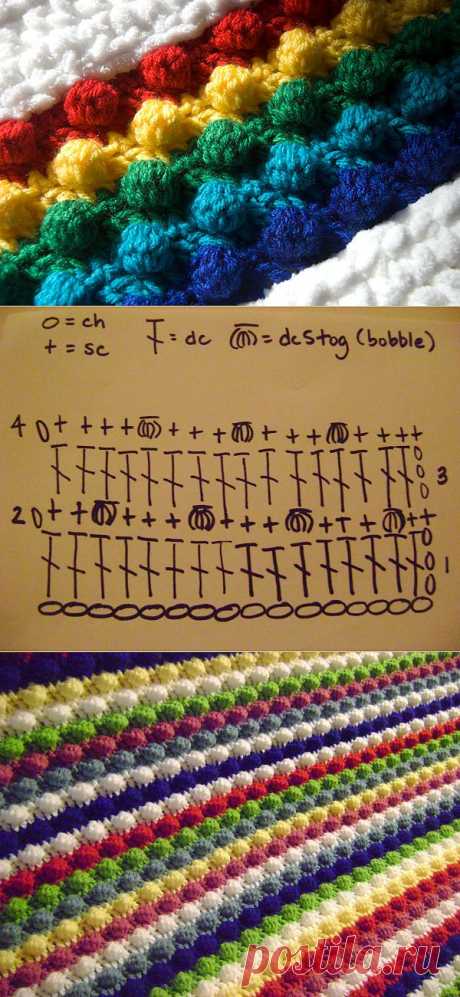 o = ch
+ = sc
= dc
= dc5tog (bobble)
4
3
2
1
postila.ru